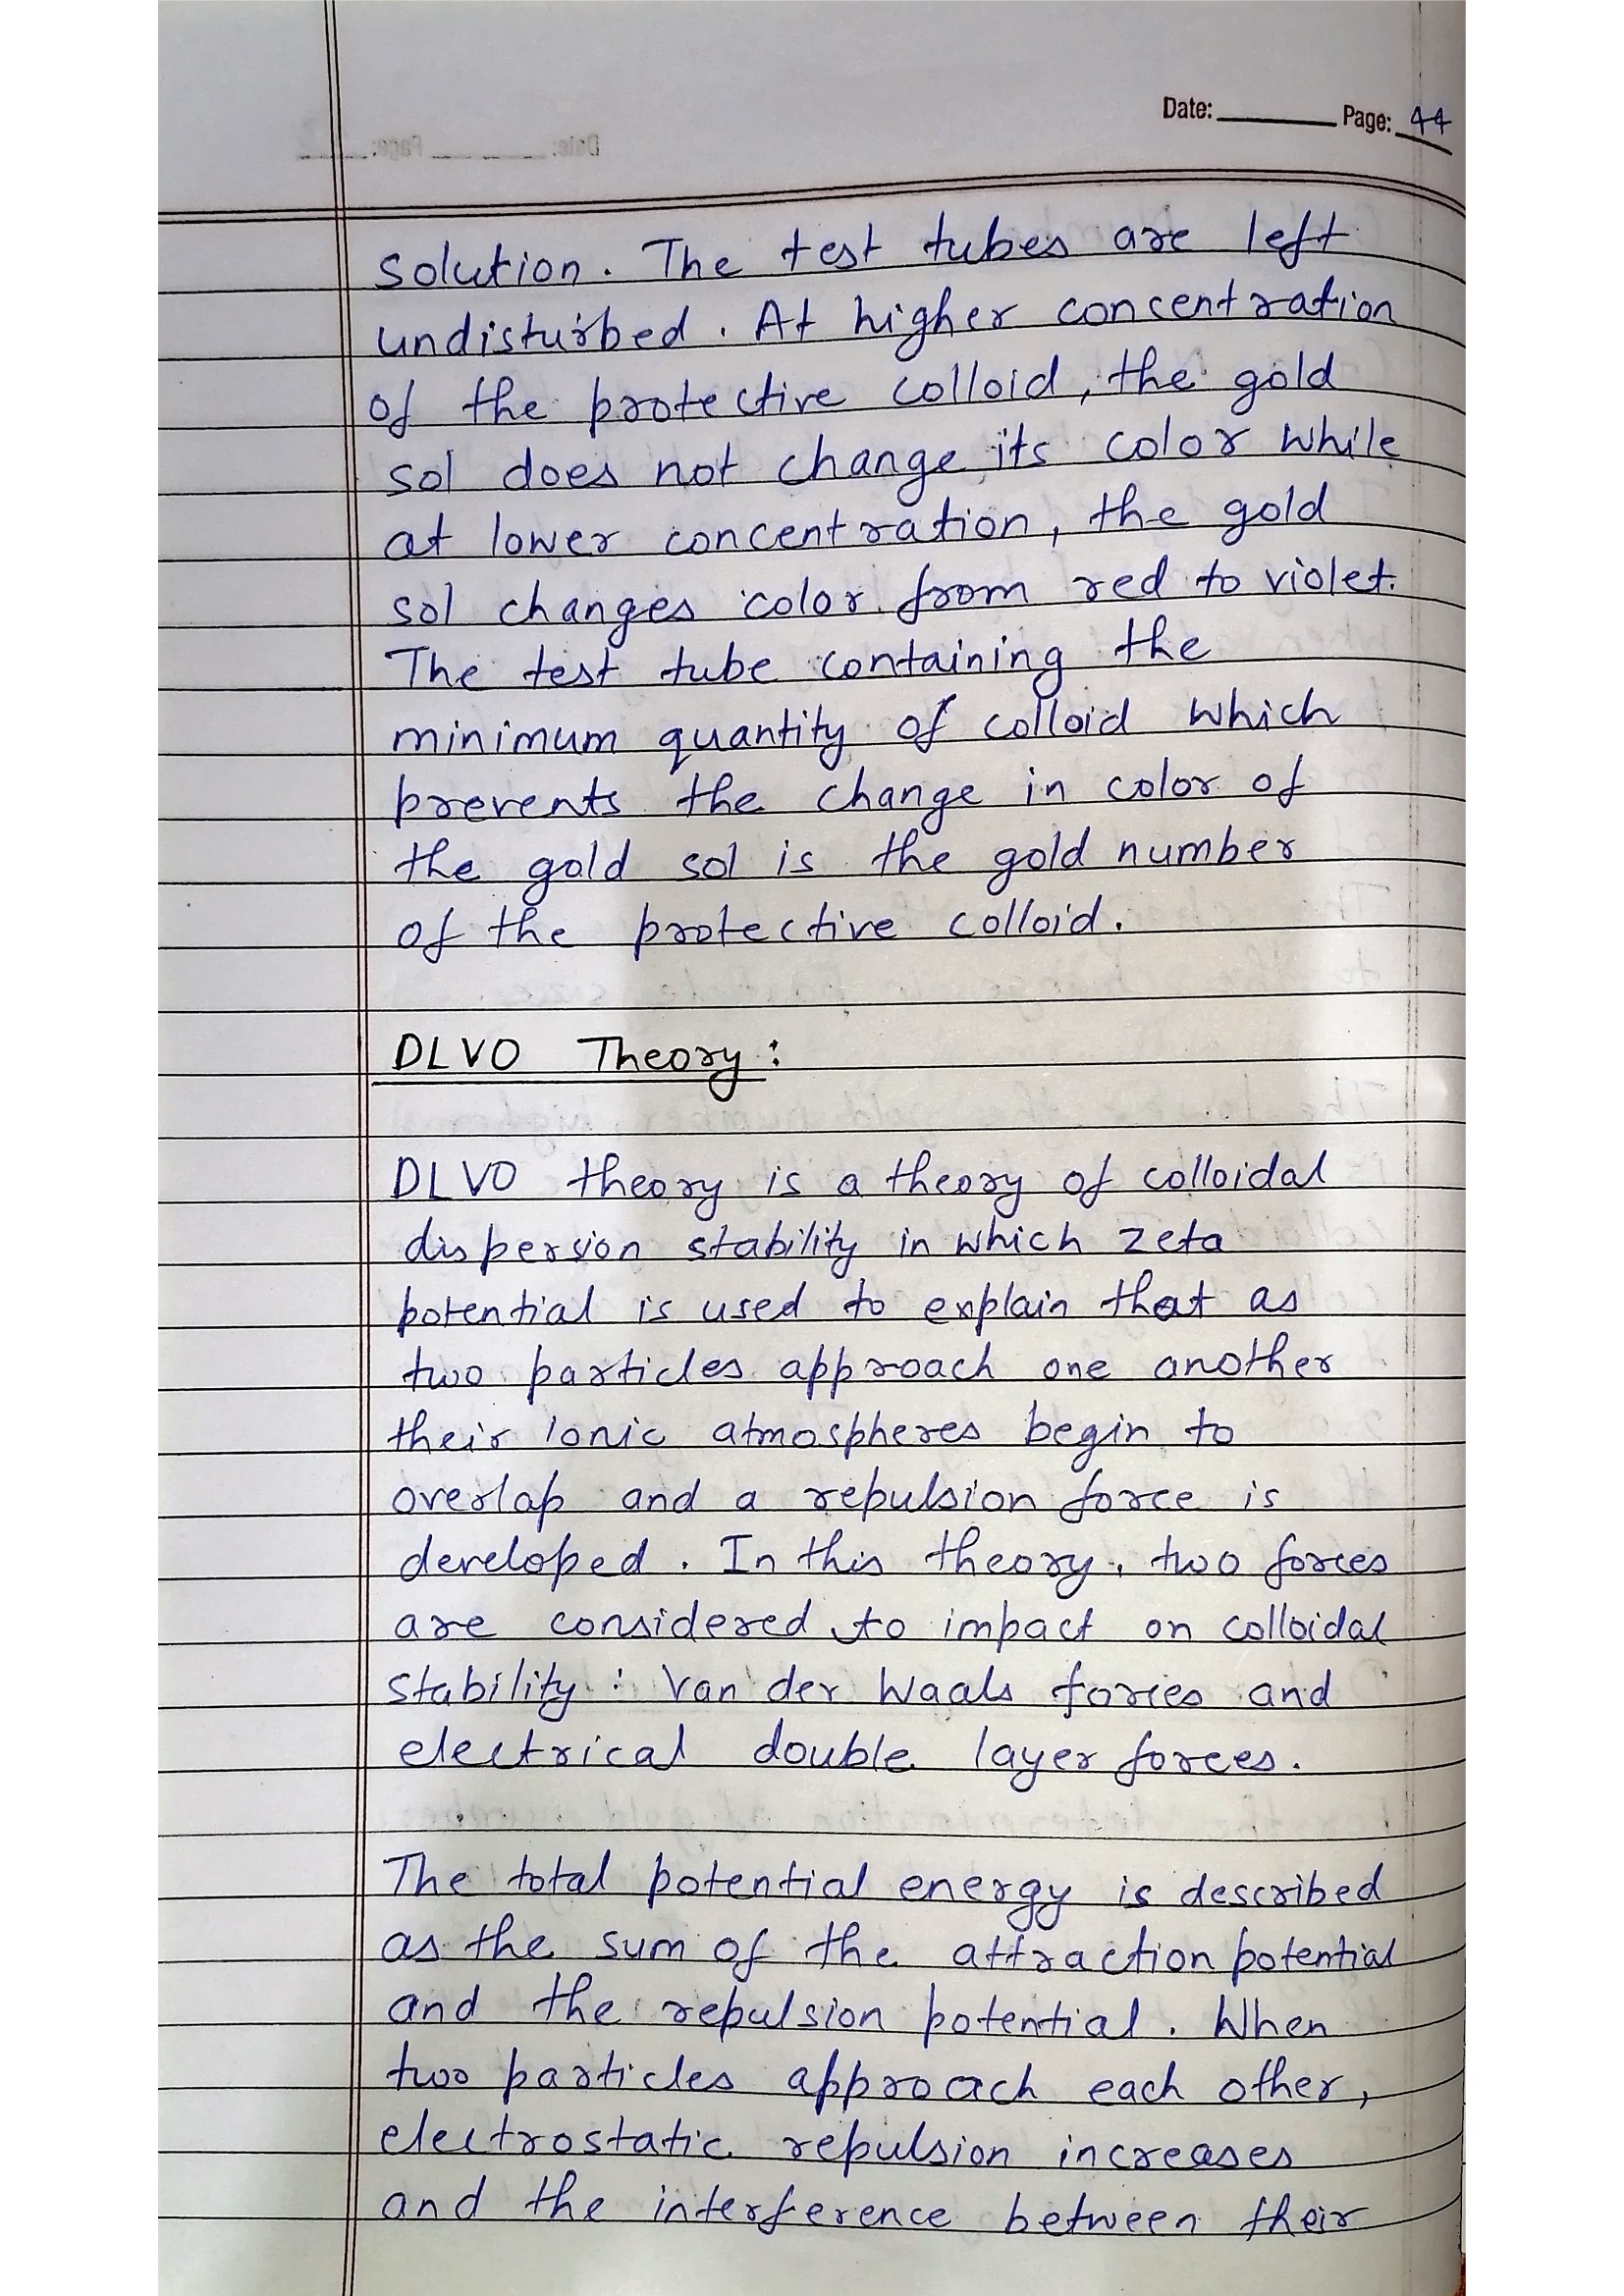 Date: Page: 44
solution. The test tubes are left
undisturbed. At higher concentration
of the protective colloid, the gold
sol does not change its color while
at lower concentration, the gold
sol changes color from red to violet.
The test tube containing the
minimum quantity of colloid which
prevents the change in color of
the gold sol is the gold number
of the protective colloid.
DLVO Theory:
DLVO theory is a theory of colloidal
dispersion stability in which zeta
potential is used to explain that as
two particles approach one another
their ionic atmospheres begin to
overlap and a repulsion force is
developed. In this theory, two forces
are considered to impact on colloidal
stability: Van der Waals forces and
electrical double layer forces.
The total potential energy is described
as the sum of the attraction potential
and the repulsion potential. When
two particles approach each other,
electrostatic repulsion increases
and the interference between their